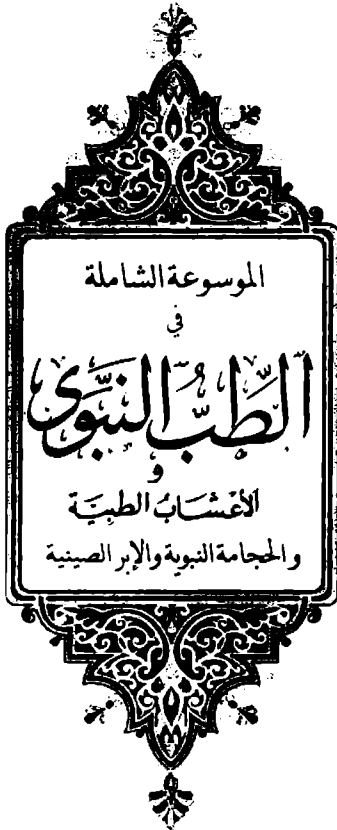 الموسوعة الشاملة
في
الطِّبُّ النَّبَوِيّ
و
الأعْشَابُ الطبيَّة
والحجامة النبوية والإبر الصينية